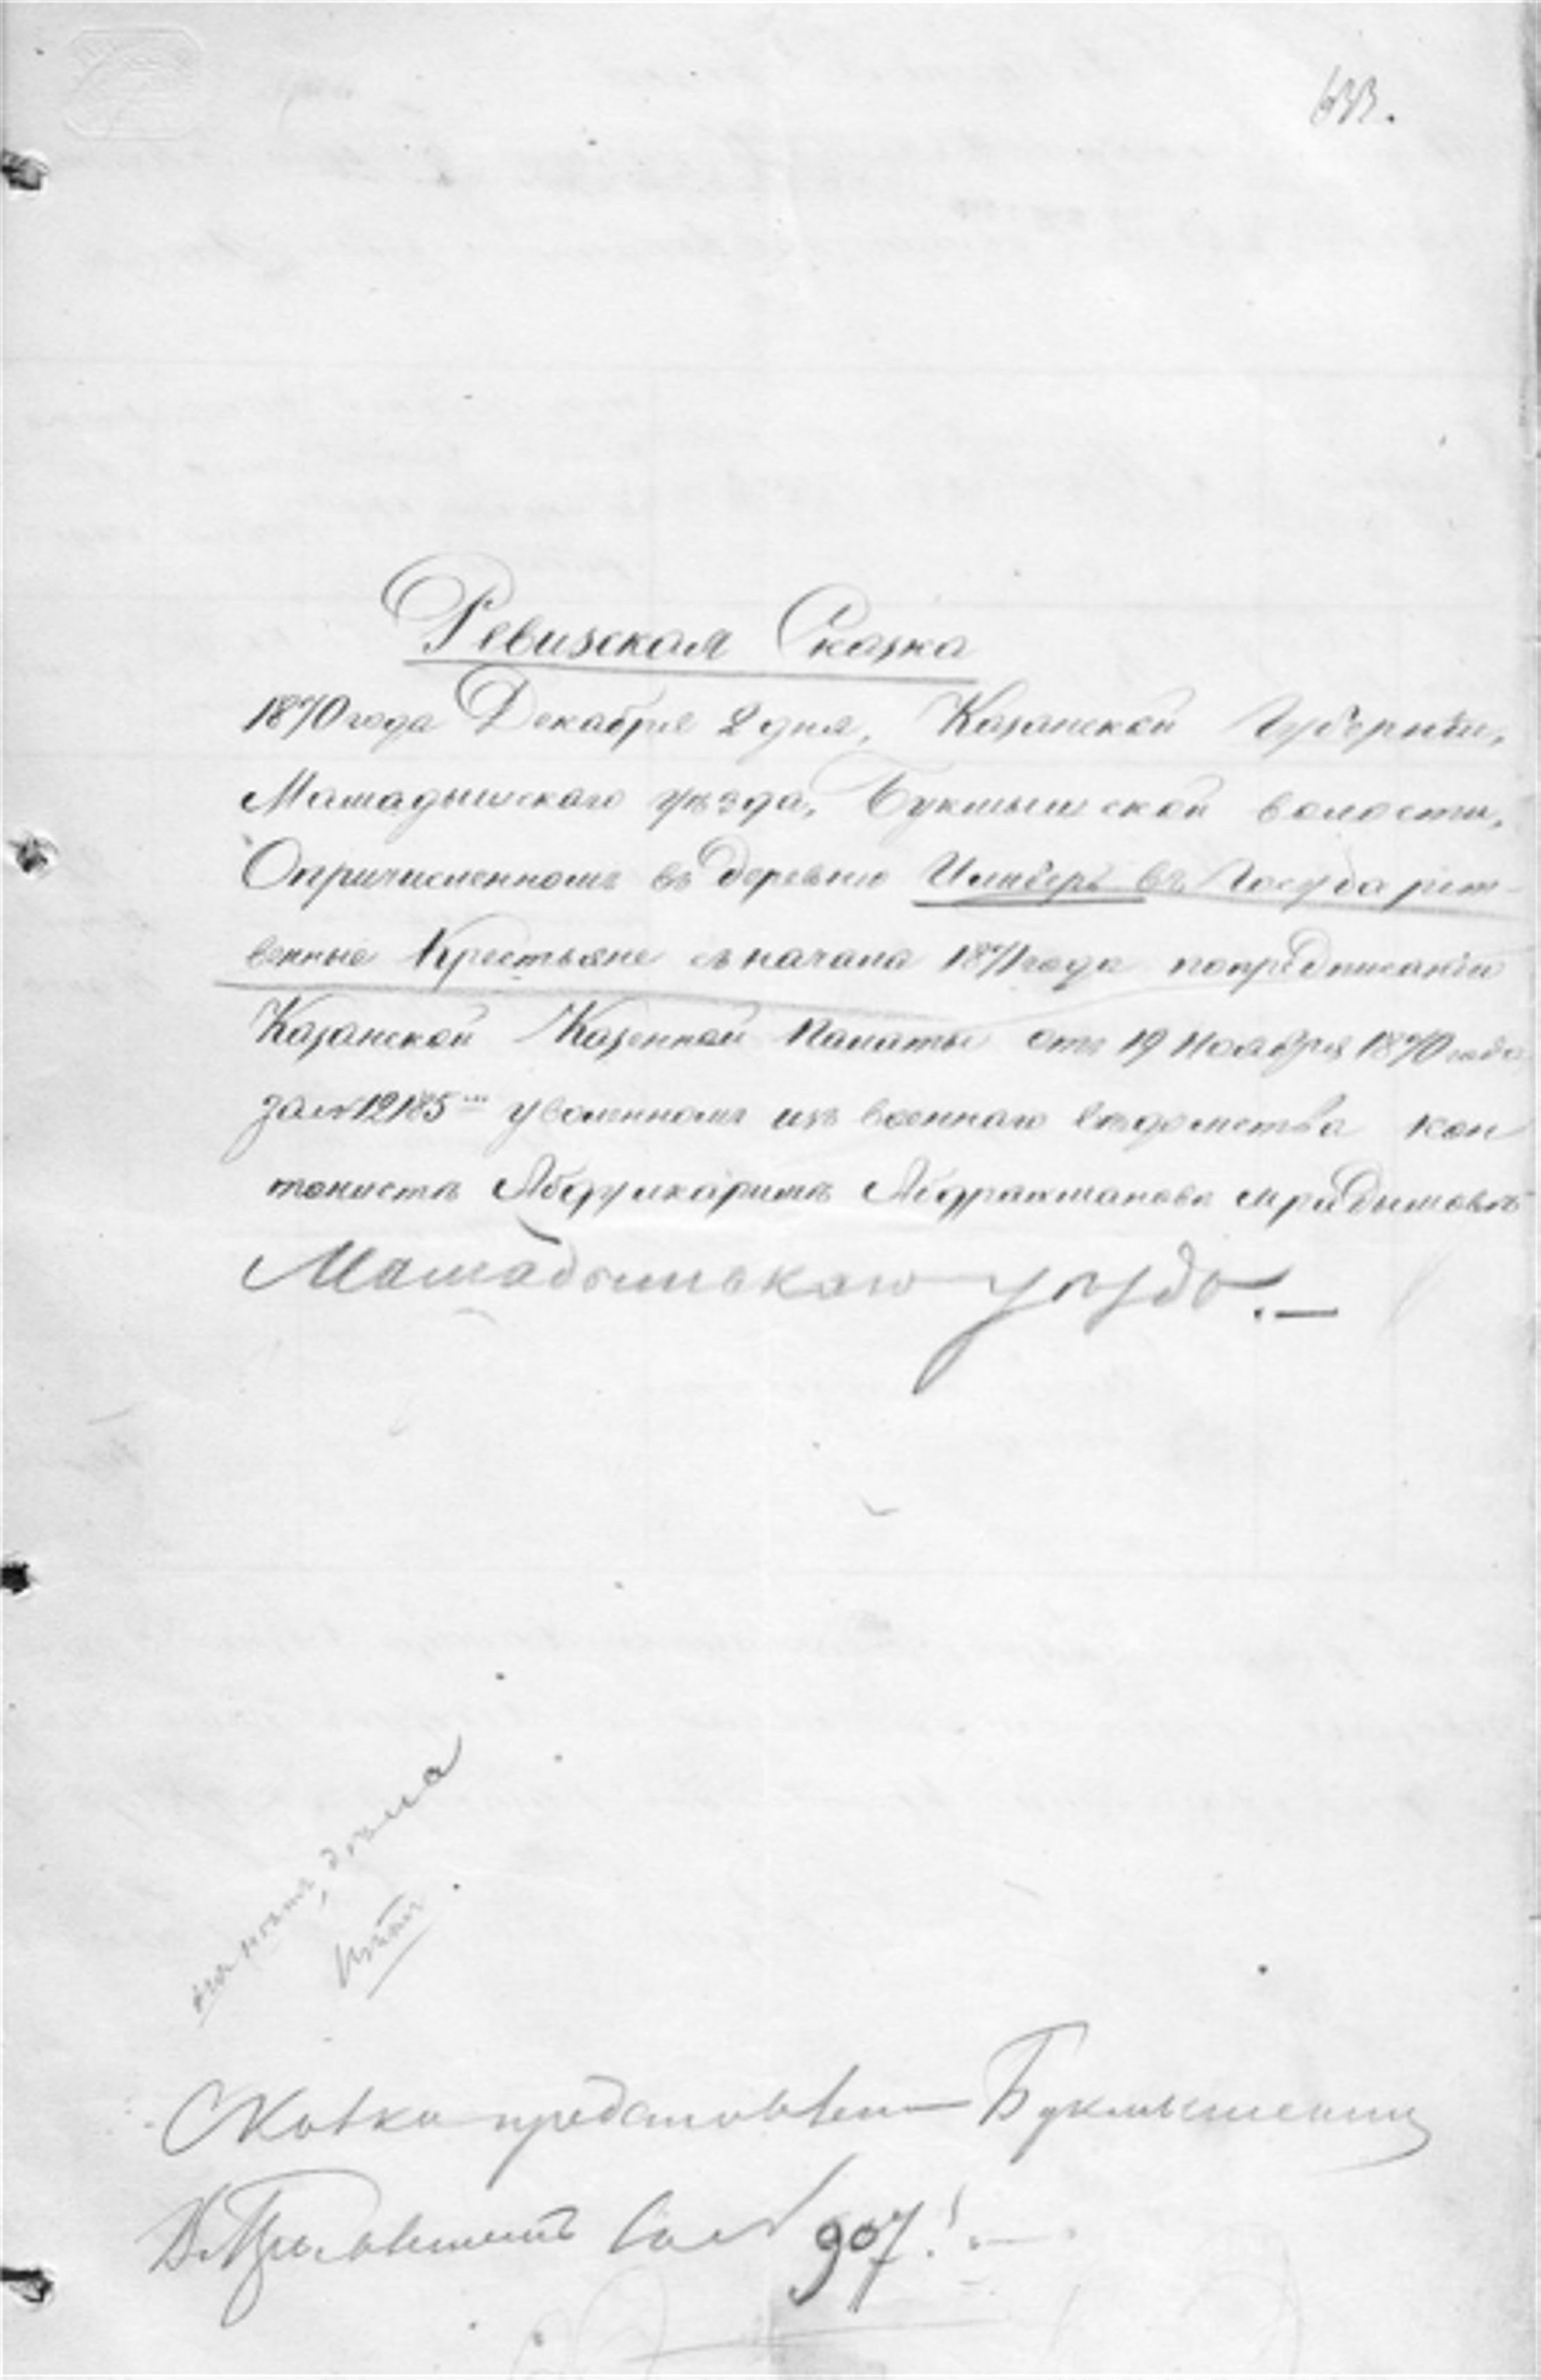 633.
Ревизская Сказка
1870 года Декабря 2 дня, Казанской Губернiи,
Мамадышскаго уѣзда, Букмышской волости,
О причисленномъ въ деревню въ Государст-
венные Крестьяне съ начала 1871 года по предписанiю
Казанской Казенной Палаты отъ 19 Ноября 1870 года
за № 12185 уволенномъ изъ военнаго вѣдомства кан
тонистѣ Абдулкаримѣ Абдрахмановѣ
Мамадышскаго уѣзда.—
Сказка представлена
Волост. Правленiемъ за № 907!.—